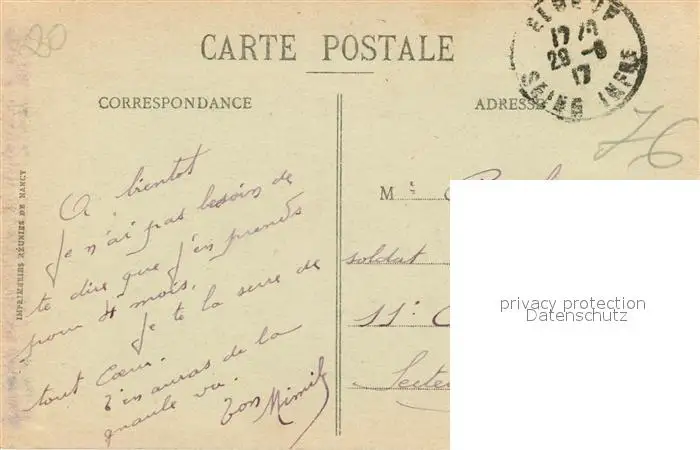 20
CARTE POSTALE
CORRESPONDANCE
ADRESSE
ELBEUF
17
29 -8
17
SEINE INFRE
76
A bientot
Je n'ai pas besoin de
te dire que j'en prends
pour 4 mois.
Je te la serre de
tout Cœur.
T'en auras de la
gnaule va.
Ton Mimile
M
soldat
11e
Secteu
IMPRIMERIES RÉUNIES DE NANCY
privacy protection
Datenschutz